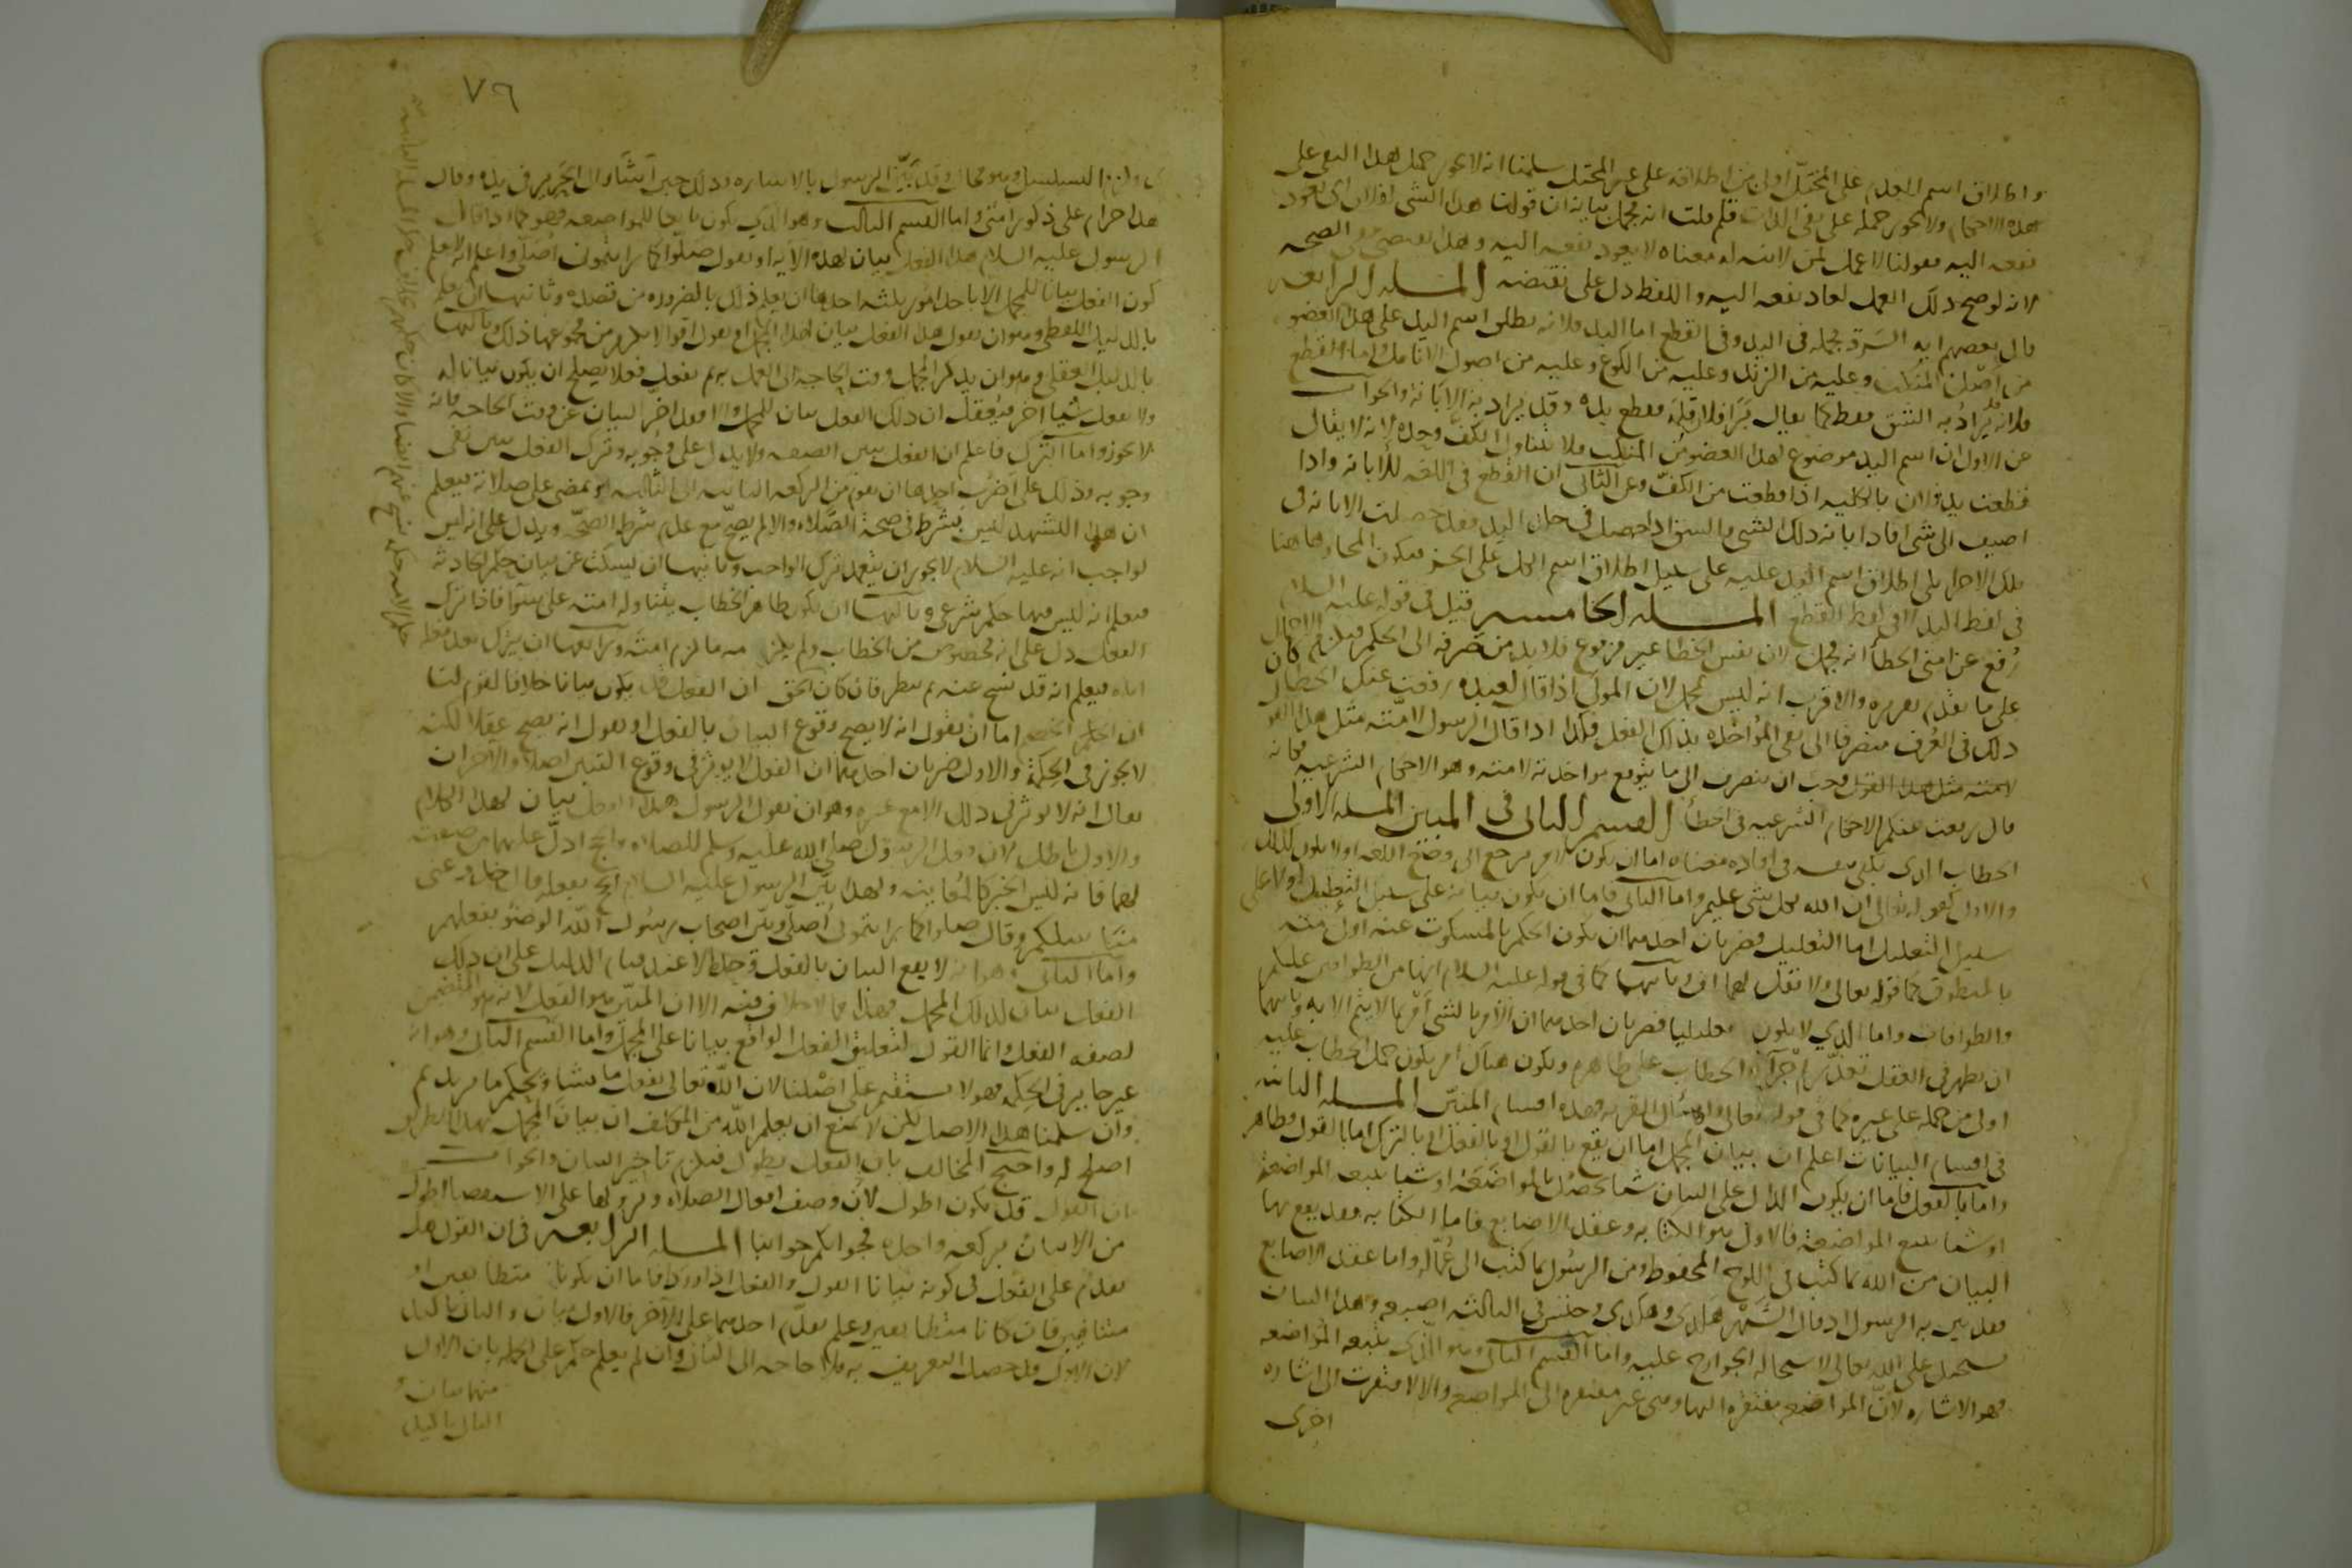 واطلاق اسم العدم على المختل اولى من اطلاقه على غير المختل سلمنا انه لا يجوز حمل هذا النفى على
هذه الاحكام ولا يجوز حمله على نفى الذات فلم قلت انه مجمل بيانه ان قولنا هذا الشى لفلان اى يعود
نفعه اليه فقولنا لا عمل لمن لا نية له معناه لا يعود نفعه اليه وهذا يقتضى نفى الصحه
لانه لو صح ذلك العمل لعاد نفعه اليه واللفظ دل على نقيضه المسله الرابعه
قال بعضهم ايه السرقة مجمله فى اليد وفى القطع اما اليد فلانه يطلق اسم اليد على هذا العضو
من اصل المنكب وعليه من الزند وعليه من الكوع وعليه من اصول الانامل واما القطع
فلانه قد يراد به الشق فقط كما يقال برا فلان قلمه فقطع يده وقد يراد به الابانة والجواب
عن الاول ان اسم اليد موضوع لهذا العضو من المنكب ولا يتناول الكف وحده لانه لا يقال
قطعت يد فلان بالكليه اذا قطعت من الكف وعن الثانى ان القطع فى اللغه للابانه واذا
اضيف الى شى افاد ابانه ذلك الشى والشق اذا حصل فى جلد اليد فقد حصلت الابانه فى
تلك الاجزا بلى اطلاق اسم اليد عليه على سبيل اطلاق اسم الكل على الجزء فيكون المجاز هاهنا
فى لفظ اليد لا فى لفظ القطع المسله الخامسه قيل فى قوله عليه السلام
رفع عن امتى الخطا انه مجمل لان نفس الخطا غير مرفوع فلا بد من صرفه الى الحكم فيلزم الاجمال
على ما تقدم تقريره والاقرب انه ليس بمجمل لان المولى اذا قال لعبده رفعت عنك الخطا كان
ذلك فى العرف منصرفا الى نفى المؤاخذه بذلك الفعل فكذا اذا قال الرسول لامته مثل هذا القول
لامته مثل هذا القول وجب ان ينصرف الى ما يتوقع مواخذته لامته وهو الاحكام الشرعيه فكانه
قال رفعت عنكم الاحكام الشرعيه فى الخطأ القسم الثانى فى المبين المسله الاولى
الخطاب الذى يكفى نفسه فى افاده معناه اما ان يكون لامر يرجع الى وضع اللغه او لا يكون كذلك
والاول كقوله تعالى ان الله بكل شى عليم واما الثانى فاما ان يكون بيانه على سبيل التعليل او لا على
سبيل التعليل اما التعليل فضربان احدهما ان يكون الحكم بالمسكوت عنه اولى منه
بالمنطوق كما فى قوله تعالى ولا تقل لهما اف وثانيهما كما فى قوله عليه السلام انها من الطوافين عليكم
والطوافات واما الذي لا يكون تعليليا فضربان احدهما ان الامر بالشى امر بما لا يتم الا به وثانيهما
ان يظهر فى العقل تعذر اجرا الخطاب على ظاهره ويكون هناك امر يكون حمل الخطاب عليه
اولى من حمله على غيره كما فى قوله تعالى واسأل القريه فهذه اقسام المبين المسله الثانيه
فى اقسام البيانات اعلم ان بيان المجمل اما ان يقع بالقول او بالفعل او بالترك اما بالقول فظاهر
واما بالفعل فاما ان يكون الدال على البيان شيا يحصل بالمواضعة او شيا يتبعه المواضعة
او شيا يتبع المواضعة فالاول هو الكتابه وعقد الاصابع فاما الكتابه فقد يقع بها
البيان من الله بما كتب فى اللوح المحفوظ ومن الرسول بما كتب الى عماله واما عقد الاصابع
فقد بين به الرسول اذ قال الشهر هكذى وهكذى وحبس فى الثالثه اصبعه وهذا البيان
يستحيل على الله تعالى لاستحالة الجوارح عليه واما القسم الثانى وهو الذى يتبعه المواضعه
فهو الاشاره لان المواضعه مفتقره اليها وهى غير مفتقره الى المواضعه والا لافتقرت الى اشاره
اخرى
٧٦
ولزم التسلسل وهو محال وقد بين الرسول بالاشاره وذلك حين اشار الى الحرير فى يده وقال
هذا حرام على ذكور امتى واما القسم الثالث وهو الذى يكون تابعا للمواضعه فهو كما اذا قال
الرسول عليه السلام هذا الفعل بيان لهذه الآيه او يقول صلوا كما رايتمونى اصلى واعلم انه لا يعلم
كون الفعل بيانا للمجمل الا باحد امور ثلثه احدها ان يعلم ذلك بالضروره من قصده وثانيها ان يعلم
بالدليل اللفظى وهو ان يقول هذا الفعل بيان لهذا المجمل او يقول اقوالا يلزم من مجموعها ذلك وثالثها
بالدليل العقلى وهو ان يذكر المجمل وقت الحاجه الى العمل به ثم يفعل فعلا يصلح ان يكون بيانا له
ولا يفعل شيا اخر فيعقل ان ذلك الفعل بيان للمجمل والا فقد اخر البيان عن وقت الحاجه وانه
لا يجوز واما الترك فاعلم ان الفعل يبين الصفه ولا يدل على وجوبه وترك الفعل يبين نفى
وجوبه وذلك على اضرب احدها ان يقوم من الركعه الثانيه الى الثالثه او يمضى على صلاته فيعلم
ان هذا التشهد ليس بشرط فى صحة الصلاه والا لم يصح مع عدم شرط الصحه ويدل على انه ليس
بواجب انه عليه السلام لا يجوز ان يتعمد ترك الواجب وثانيها ان يسكت عن بيان حكم الحادثه
فيعلم انه ليس فيها حكم شرعى وثالثها ان يكون ظاهر الخطاب يتناوله امته على سوا فاذا ترك
الفعل دل على انه مخصوص من الخطاب ولم يلزمه ما لزم امته ورابعها ان يترك بعد فعله
اياه فيعلم انه قد نسخ عنه ثم ينظر فان كان الحق ان الفعل قد يكون بيانا خلافا لقوم لنا
ان الخصم اما ان يقول انه لا يصح وقوع البيان بالفعل او يقول انه يصح عقلا لكنه
لا يجوز فى الحكمة والاول ضربان احدهما ان الفعل لا يوثر فى وقوع التبيين اصلا والاخر ان
يقال انه لا يوثر فى ذلك الا مع غيره وهو ان يقول الرسول هذا الفعل بيان لهذا الكلام
والاول باطل لان فعل الرسول صلى الله عليه وسلم للصلاه والحج ادل عليهما من صفته
لهما فانه ليس الخبر كالمعاينه ولهذا بين الرسول عليه السلام الحج بفعله فقال خذوا عنى
مناسككم وقال صلوا كما رايتمونى اصلى وبين اصحاب رسول الله الوضوء بفعلهم
واما الثانى وهو انه لا يقع البيان بالفعل وحده الا عند قيام الدليل على ان ذلك
الفعل بيان لذلك المجمل فهذا مما لا خلاف فيه الا ان المبين هو الفعل لانه هو المتضمن
لصفه الفعل وانما القول لتعليق الفعل الواقع بيانا على المجمل واما القسم الثانى وهو انه
غير جايز فى الحكمه فهو لا يستقيم على اصلنا لان الله تعالى يفعل ما يشا ويحكم ما يريد ثم
وان سلمنا هذا الاصل لكن لا يمتنع ان يعلم الله من المكلف ان بيان المجمل بهذا الطريق
اصلح له واحتج المخالف بان الفعل يطول فيلزم تاخير البيان والجواب
بان القول قد يكون اطول لان وصف افعال الصلاه وتروكها على الاستقصا اطول
من الاتيان بركعه واحده فجوابكم جوابنا المسله الرابعه فى ان القول هل
يقدم على الفعل فى كونه بيانا القول والفعل اذا وردا فاما ان يكونا متطابقين او
متنافيين فان كانا متطابقين وعلم تقدم احدهما على الآخر فالاول بيان والثانى تاكيد
لان الاول قد حصل التعريف به فلا حاجه الى الثانى وان لم يعلم حكم على الجمله بان الاول
منهما بيان و
الثانى تاكيد